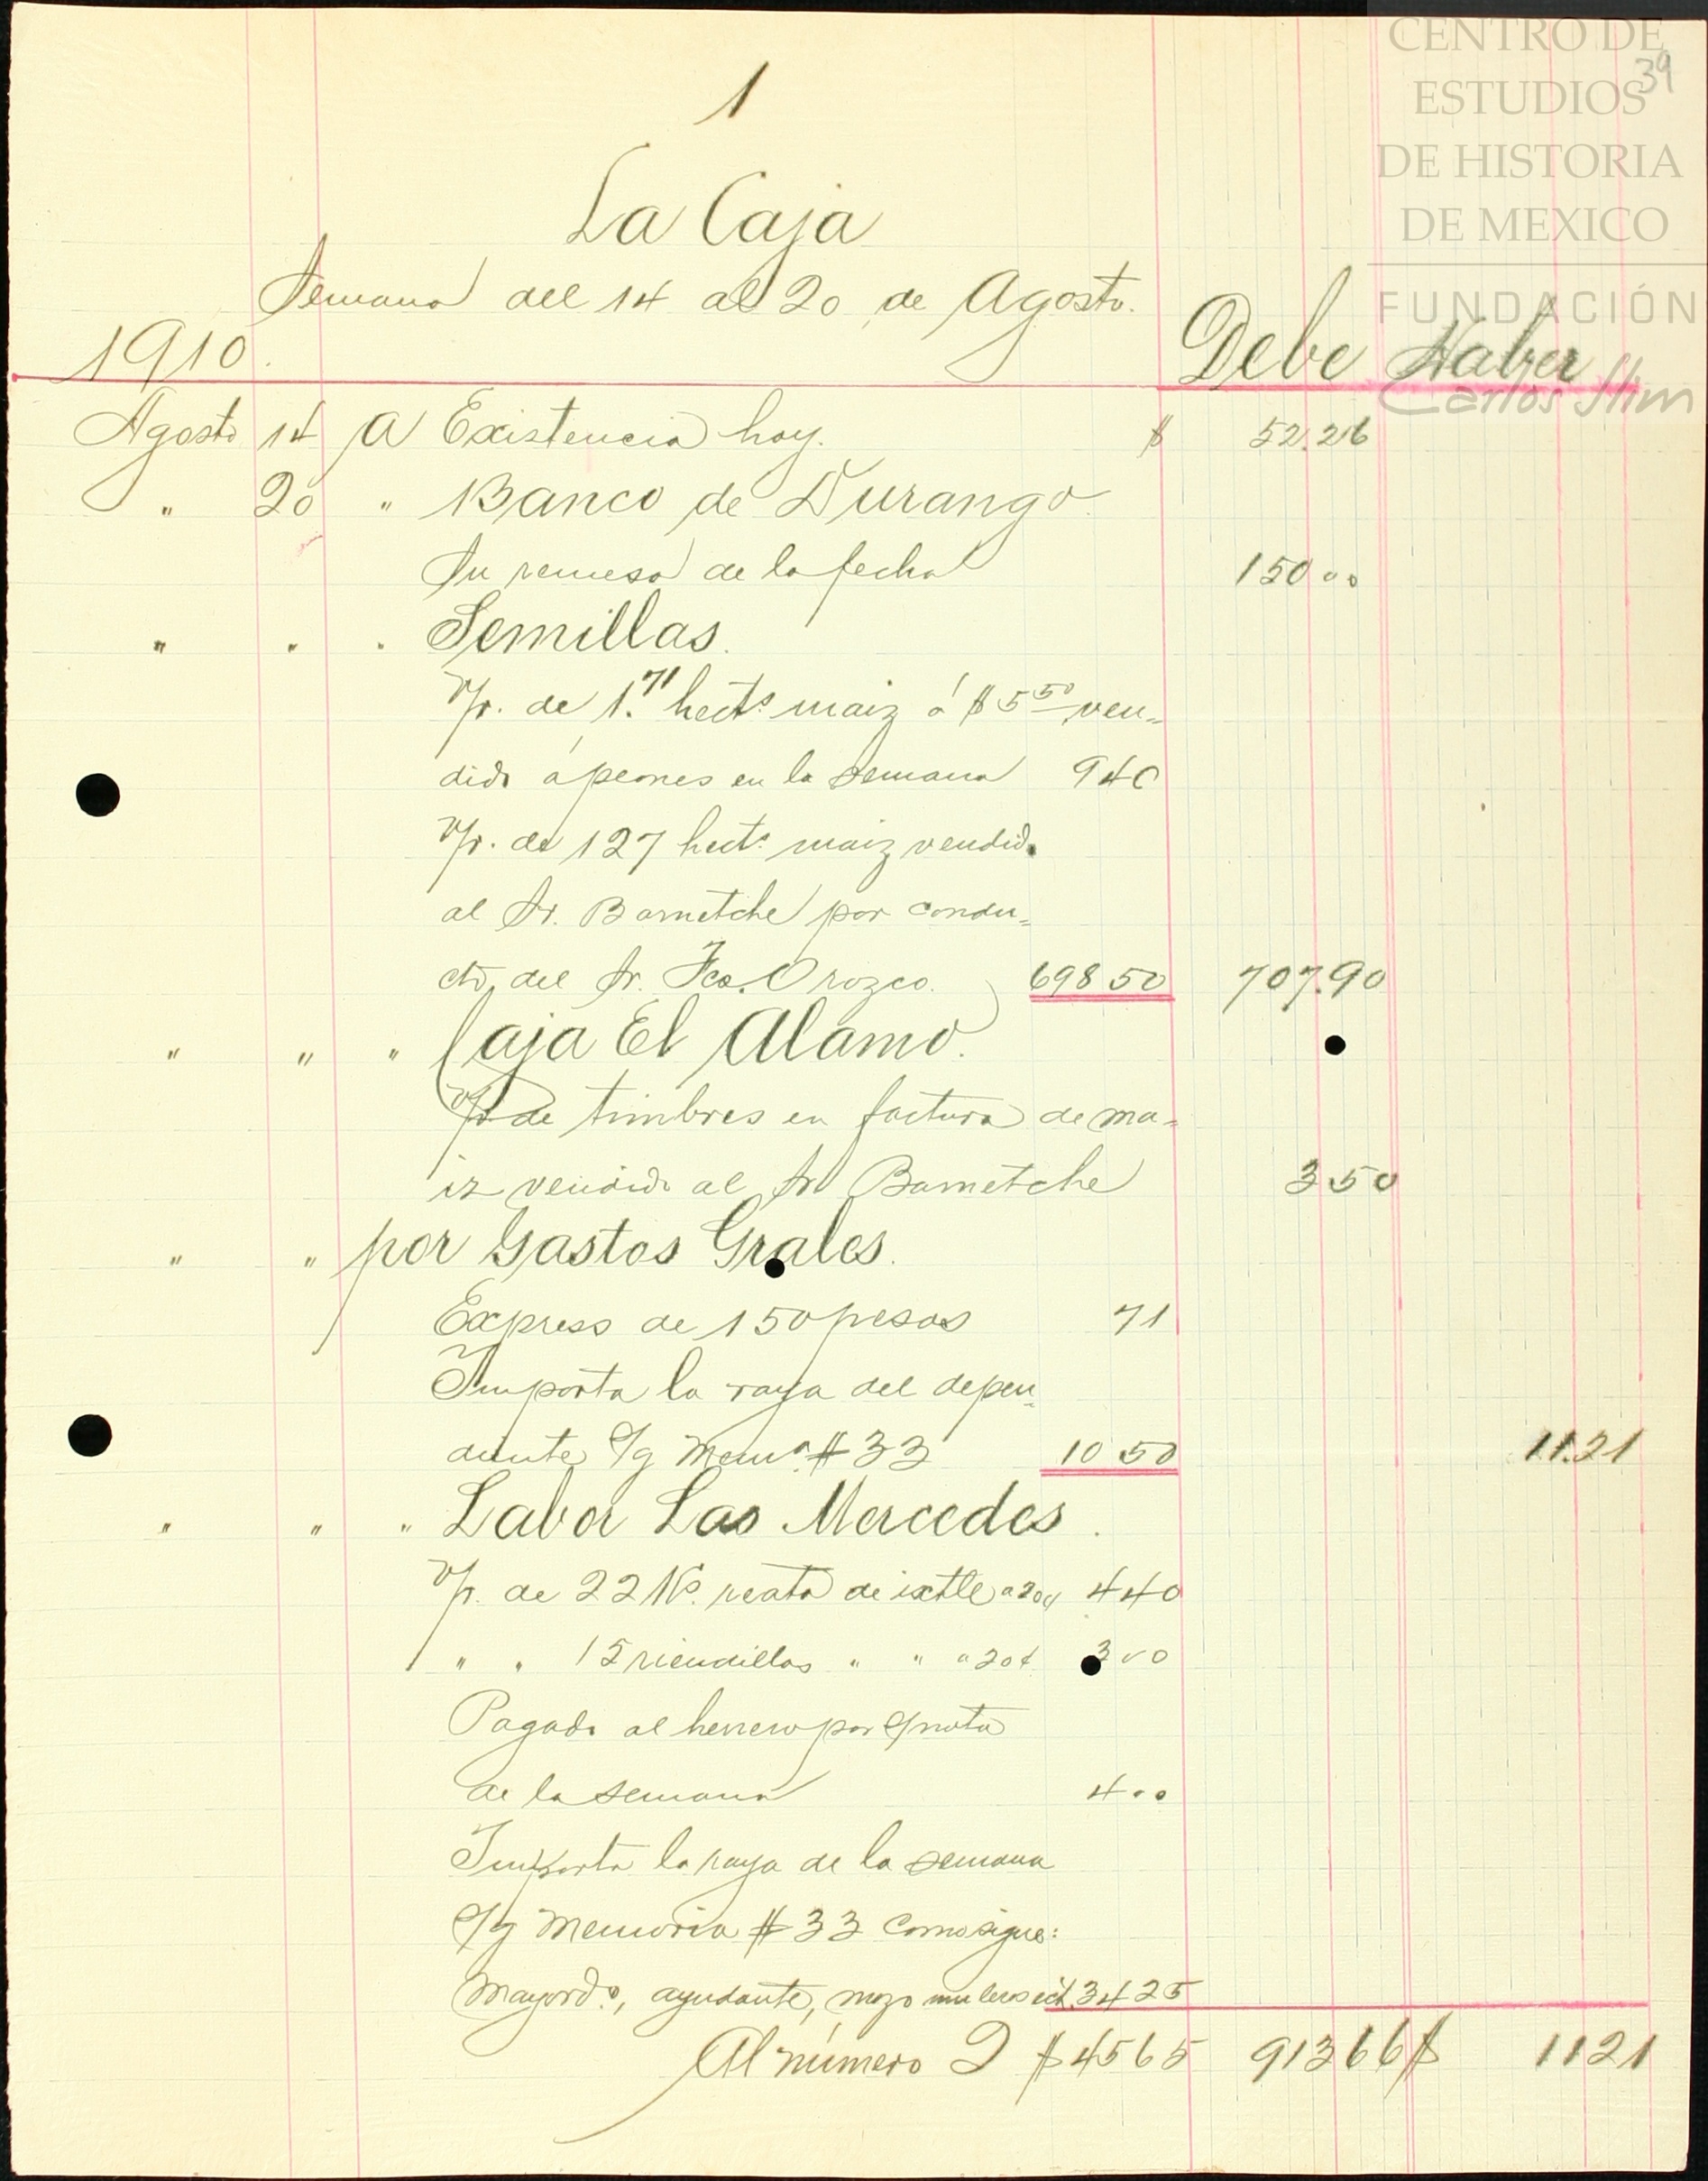 CENTRO DE
39
ESTUDIOS
DE HISTORIA
DE MEXICO
FUNDACIÓN
Carlos Slim
1
La Caja
Semana del 14 al 20 de Agosto.
1910. Debe Haber
Agosto 14 A Existencia hoy. $ 52.26
" 20 " Banco de Durango.
Su remesa de la fecha 150 00
" " " Semillas.
V/r. de 1.71 hects maiz á $ 5 50 ven=
dido á peones en la semana 9 40
V/r. de 127 hects maiz vendido
al Sr. Barnetche por condu=
cto del Sr. Fco. Orozco. 698 50 707.90
" " " Caja El Alamo.
V/r. de timbres en factura de ma=
iz vendido al Sr Barnetche 3 50
" " por Gastos Grales.
Express de 150 pesos 71
Importa la raya del depen=
diente S/g Mema. # 33 10 50 11.21
" " " Labor Las Mercedes.
V/r. de 22 Ks. reata de ixtle a 20¢ 4 40
" " 15 riendillas " " " 20¢ 3 00
Pagado al herrero por
de la semana 4 00
Importa la raya de la semana
S/g Memoria # 33 como sigue:
Mayordo., ayudante, mozo muleros ect. 34 25
Al número 2 $ 45 65 913 66 $ 11 21